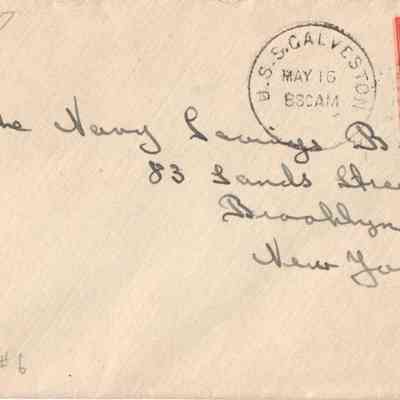 U.S.S. GALVESTON
MAY 16
830AM
he Navy Savings B
83 Sands Stree
Brooklyn
New Yo
#6